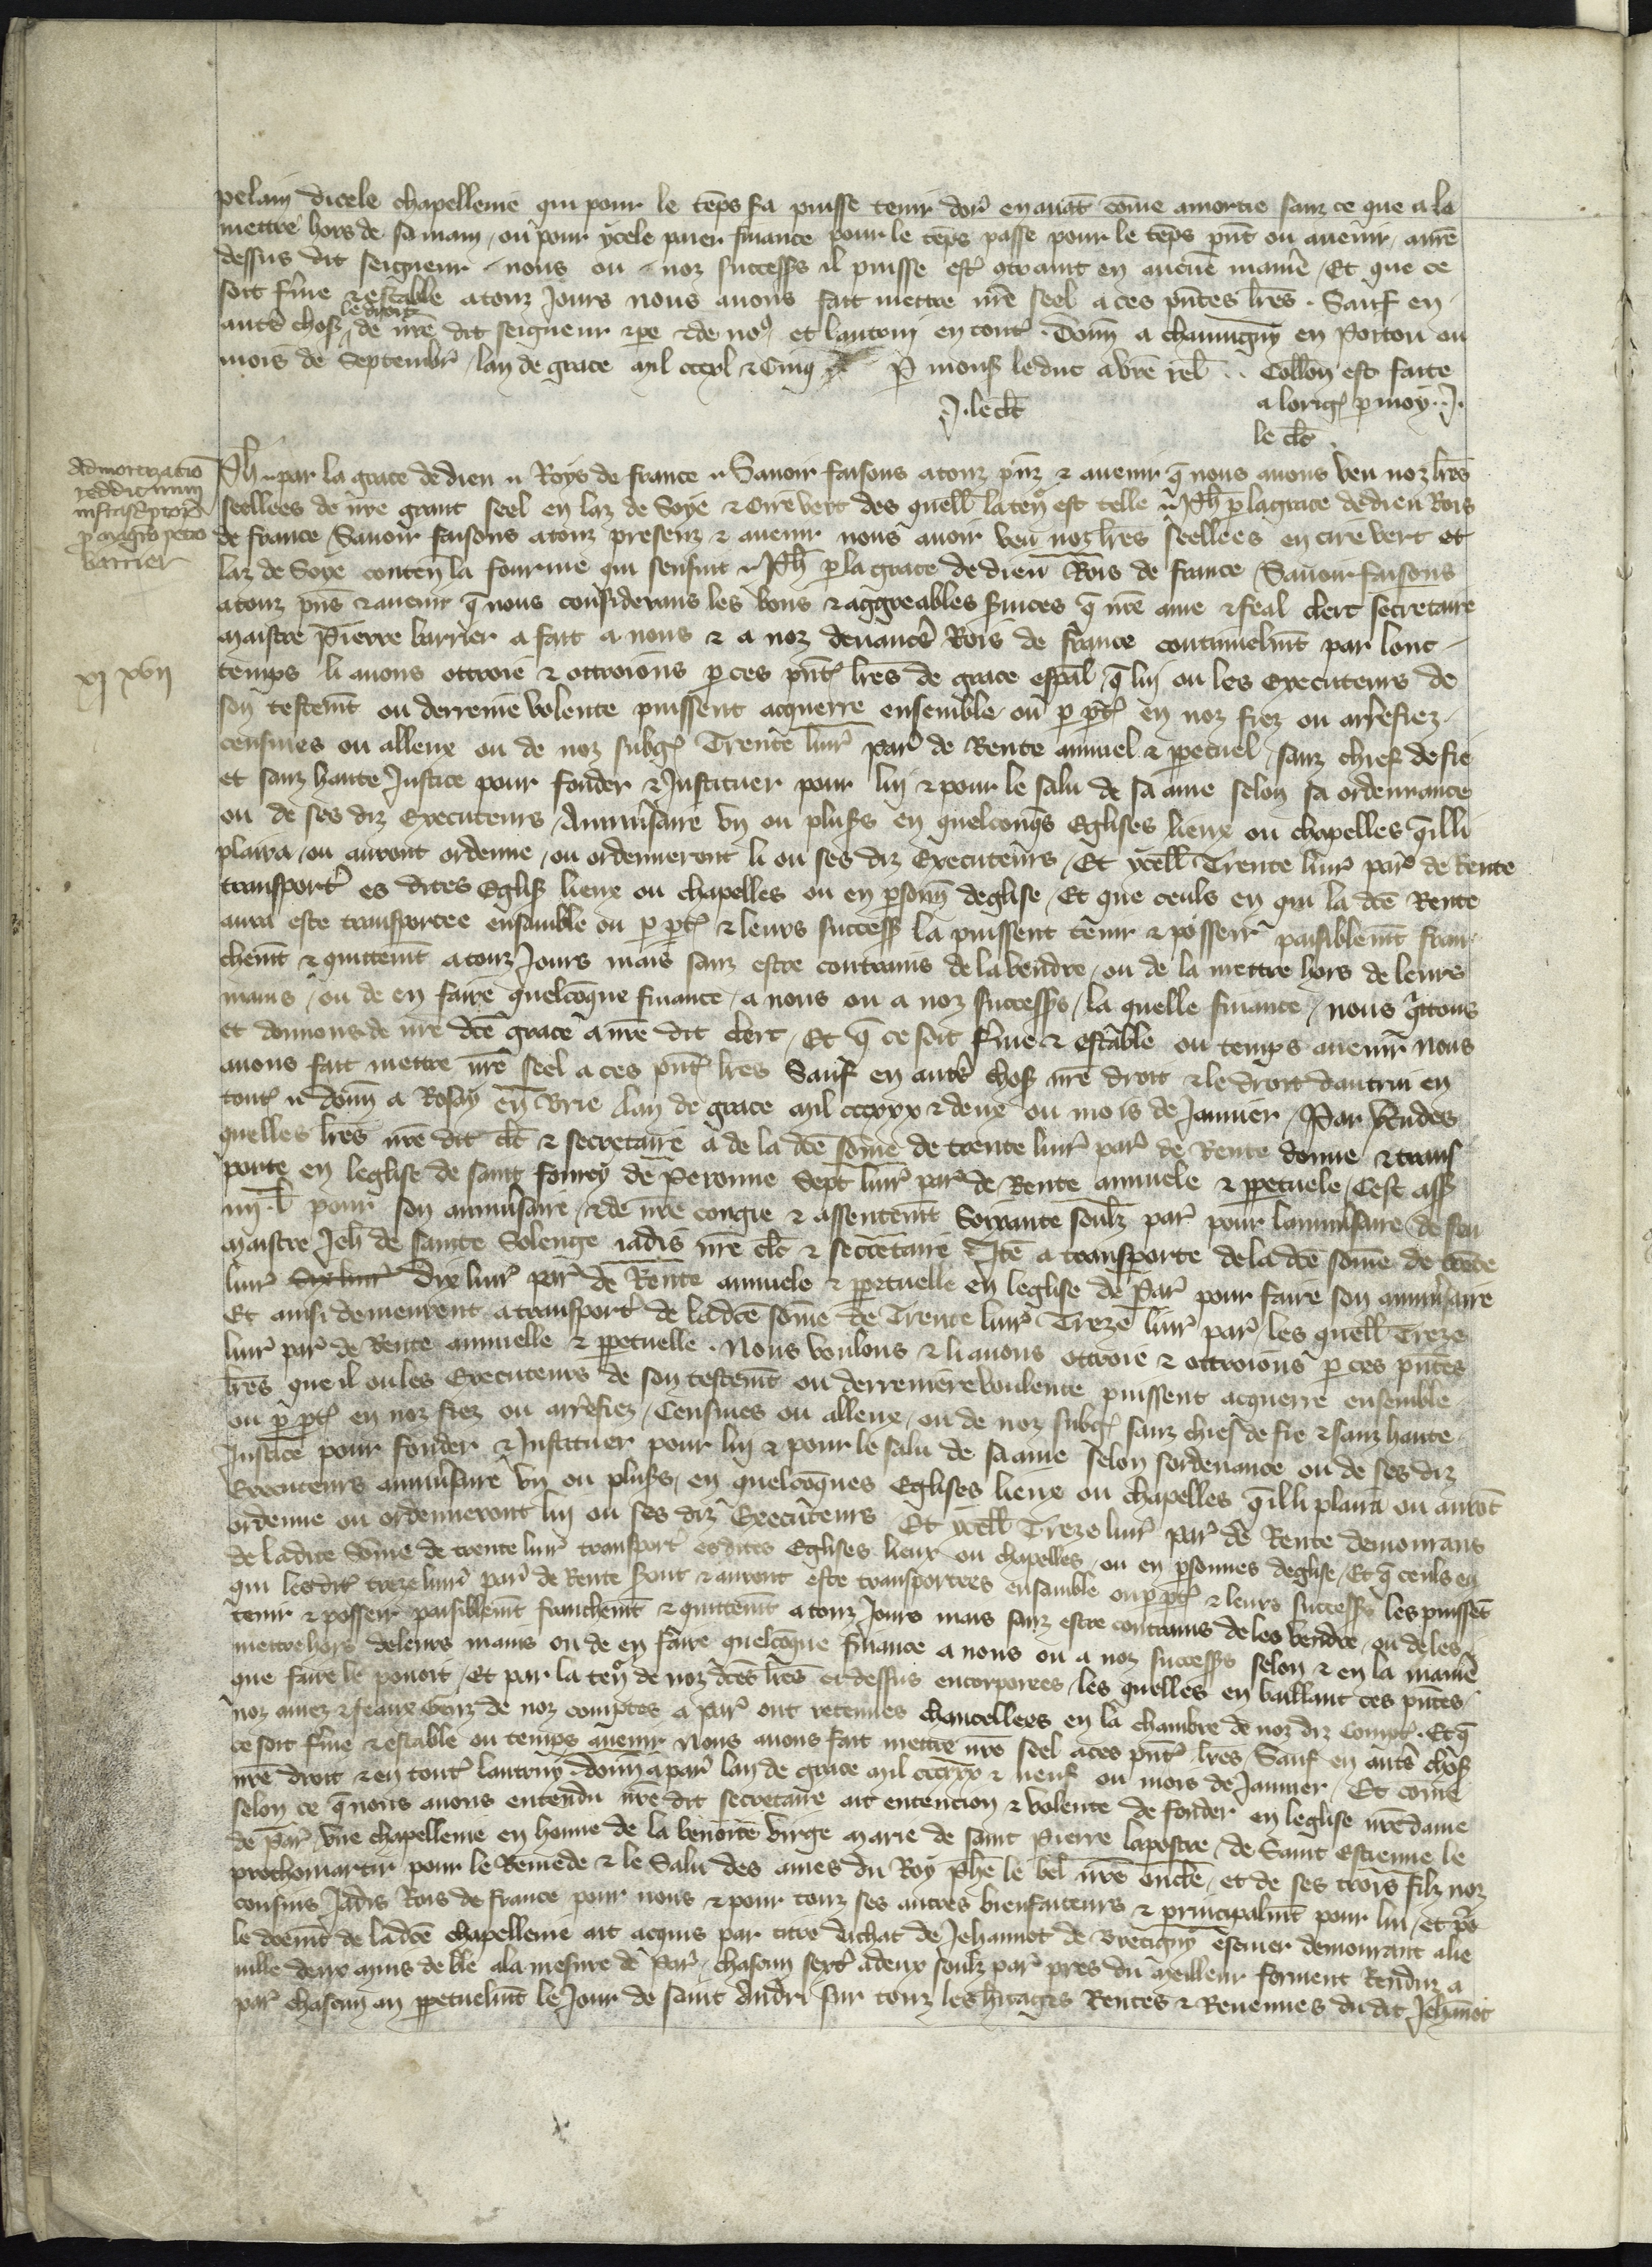 pelain dicele chapellenie qui pour le tẽps sa puisse tenir dor̃ enauãt cõme amortie sanz ce que a la
mettre hors de sa main / ou pour ycele paier finance pour le tẽps passe pour le tẽps p̃nt ou auenir / a nr̃e
dessus dit seigneur / nous ou / noz success̃s il puisse est̃ cõtraint en aucũe manie᷑ / Et que ce
soit ferme & estable a touz Jours nous auons fait mettre nr̃e seel a ces p̃ntes lr̃es . Sauf en
aut̃s chos̃ le droit de nr̃e dit seigneur & pe᷑ & de noꝰ et lautrui en tout̃ . Donn̄ a chauuigny en Poitou ou
mois de Septembr̃ / lan de grace mil cccxl & Cinq Par mons̃ le duc a vr̃e rel̃ .. Coll̃on est faite
J . le cl̃c a lorig̃ p moy . J .
le cl̃c
Admortizacio
reddituum
infrascriptorũ
p magr̃o petro
barrier
Ph̃ par la grace de dieu Roys de france Sauoir faisons a touz p̃nz & auenir q̃ nous auons veu noz lr̃es
seellees de nr̃e grant seel en laz de Soye & Cire vert des quell̃ la teñ est telle Ph̃ p la grace de dieu Rois
de france Sauoir faisons a touz presenz & auenir nous auoir veu noz lr̃es seellees en cire vert et
laz de Soye conteñ la fourme qui sensuit Ph̃ p la grace de dieu Rois de france Sauoir faisons
a touz p̃ns & auenir q̃ nous considerans les bons & aggreables s̃uices q̃ nr̃e ame & feal clerc secretaire
maistre Pierre barrier a fait a nous & a noz deuanc̃rs Rois de france continuelm̃t par lonc
xj xvij
temps li auons ottroie & ottroions p ces p̃nt̃ lr̃es de grace esp̃al q̃ lui ou les executeurs de
son testem̃t ou derreniẽ volente puissent acquerre ensemble ou p pt̃ en noz fiez ou arrefiez
censiues ou alleux ou de noz subg̃ Trente liur̃ par̃ de Rente annuel & p̱petuel / sanz chief de fie
et sanz haute Justice pour fonder & Instituer pour lui & pour le salu de sa ame selon sa ordennance
ou de ses diz Executeurs / Anniũsaire vn ou plus̃s en quelconq̃s Eglises lieux ou chapelles q̃il li
plaira / ou auront ordenne / ou ordenneront li ou ses diz Executeurs / Et ycell̃ Trente liur̃ par̃ de Rente
transport̃ es dites Eglis̃ lieux ou chapelles ou en p̱sonn̄ deglise / Et que ceuls en qui la dc̃e Rente
aura este transportee ensamble ou p pt̃ & leurs success̃ la puissent tenir & posseir paisiblem̃t fran
chem̃t & quittem̃t a touz Jours mais sanz estre contrains de la vendre / ou de la mettre hors de leurs
mains / ou de en faire quelcõque finance / a nous ou a noz success̃s / la quelle finance / nous q̃ittons
et donnons de nr̃e dc̃e grace a nr̃e dit clerc / Et q̃ ce soit ferme & estable ou temps auenir nous
auons fait mettre nr̃e seel a ces p̃nt̃ lr̃es Sauf en aut̃s chos̃ nr̃e droit & le droit dautrui en
tout̃ donn̄ a Rosay en Brie lan de grace mil cccxxx & deux ou mois de Januier / Par v̾tu des
quelles lr̃es nr̃e dit cl̃c & secretaire a de la dc̃e sõme de trente liur̃ par̃ de Rente donne & trans
porte en leglise de saint fourcy de Peronne Sept liur̃ par̃ de Rente annuele & p̱petuele / Cest ass̃
iiij . l̃ pour son anniũsaire / & de nr̃e congie & assentem̃t Soixante soulz par̃ pour lanniũsaire de feu
maistre Jeh̃ de sainte Solenge iadis nr̃e cl̃c & secretaire Itẽ a transporte de la dc̃e sõme de trẽte
liur̃ Dix liur̃ Dix liur̃ par̃ de Rente annuele & p̱petuelle en leglise de Par̃ pour faire son anniũsaire
Et ainsi demeurent a transport̃ de la dc̃e sõme de Trente liur̃ Treze liur̃ par̃ / les quell̃ Treze
liur̃ par̃ de Rente annuelle & p̱petuelle . Nous voulons & li auons ottroie & ottroions p ces p̃ntes
lr̃es que il ou les Executeurs de son testem̃t ou derreniere voulente puissent acquerre ensemble
ou p pt̃ en noz fiez ou arrefiez / Censiues ou alleux / ou de noz subg̃ sanz chief de fie & sanz haute
Justice pour fonder & Instituer pour lui & pour le salu de sa ame selon sordenance ou de ses diz
Executeurs anniũsaire vn ou plus̃s / en quelcõques Eglises lieux ou chapelles q̃il li plaira ou aurõt
ordenne ou ordenneront lui ou ses diz Executeurs Et ycell̃ Treze liur̃ par̃ de Rente demourans
de la dite Sõme de trente liur̃ transport̃ esdites Eglises lieux ou chapelles / ou en p̱sonnes deglise / Et q̃ ceuls en
qui lesdit̃ treze liur̃ par̃ de Rente sont & auront este transportees ensamble ou p pt̃ & leurs success̃s les puissẽt
tenir & posseir paisiblem̃t franchem̃t & quittem̃t a touz Jours mais sanz estre contrains de les vendre / ou de les
mettre hors de leurs mains ou de en faire quelcõque finance a nous ou a noz success̃s selon & en la manie᷑
que faire le pouoit / Et par la teñ de noz dc̃es lr̃es ci dessus encorporees / les quelles en baillant ces p̃ntes
noz amez & feaux Genz de noz comptes a par̃ ont retenues chancellees en la chambre de noz diz Compt̃ . Et q̃
ce soit ferme & estable ou temps auenir Nous auons fait mettre nr̃e seel a ces p̃nt̃ lr̃es Sauf en aut̃s chos̃
nr̃e droit & en tout̃ lautruy . donn̄ a par̃ lan de grace mil cccxxx & neuf ou mois de Januier / Et cõme
selon ce q̃ nous auons entendu nr̃e dit secretaire ait entencion & volente de fonder en leglise nr̃e dame
de Par̃ vne chapellenie en honne᷑ de la benoite virge marie de saint Pierre lapostre / de Saint Estienne le
prothomartir pour le Remede & le Salu des ames du Roy phẽ le bel nr̃e oncle / et de ses trois filz noz
cousins Jadis Rois de france pour nous & pour touz ses autres bienfaiteurs & principalm̃t pour lui / Et p̃r
le doem̃t de la dc̃e chapellenie ait acquis par titre dachat de Jehannot de Bretigny escuier demourant a lie
uille deux muis de ble a la mesure de Par̃ / chascun sext̃ a deux soulz par̃ pres du meilleur forment Renduz a
par̃ chascun an p̱petuelm̃t le Jour de saint Andri sur touz les h̾itages Rentes & Reuenues du dit Jehãnot